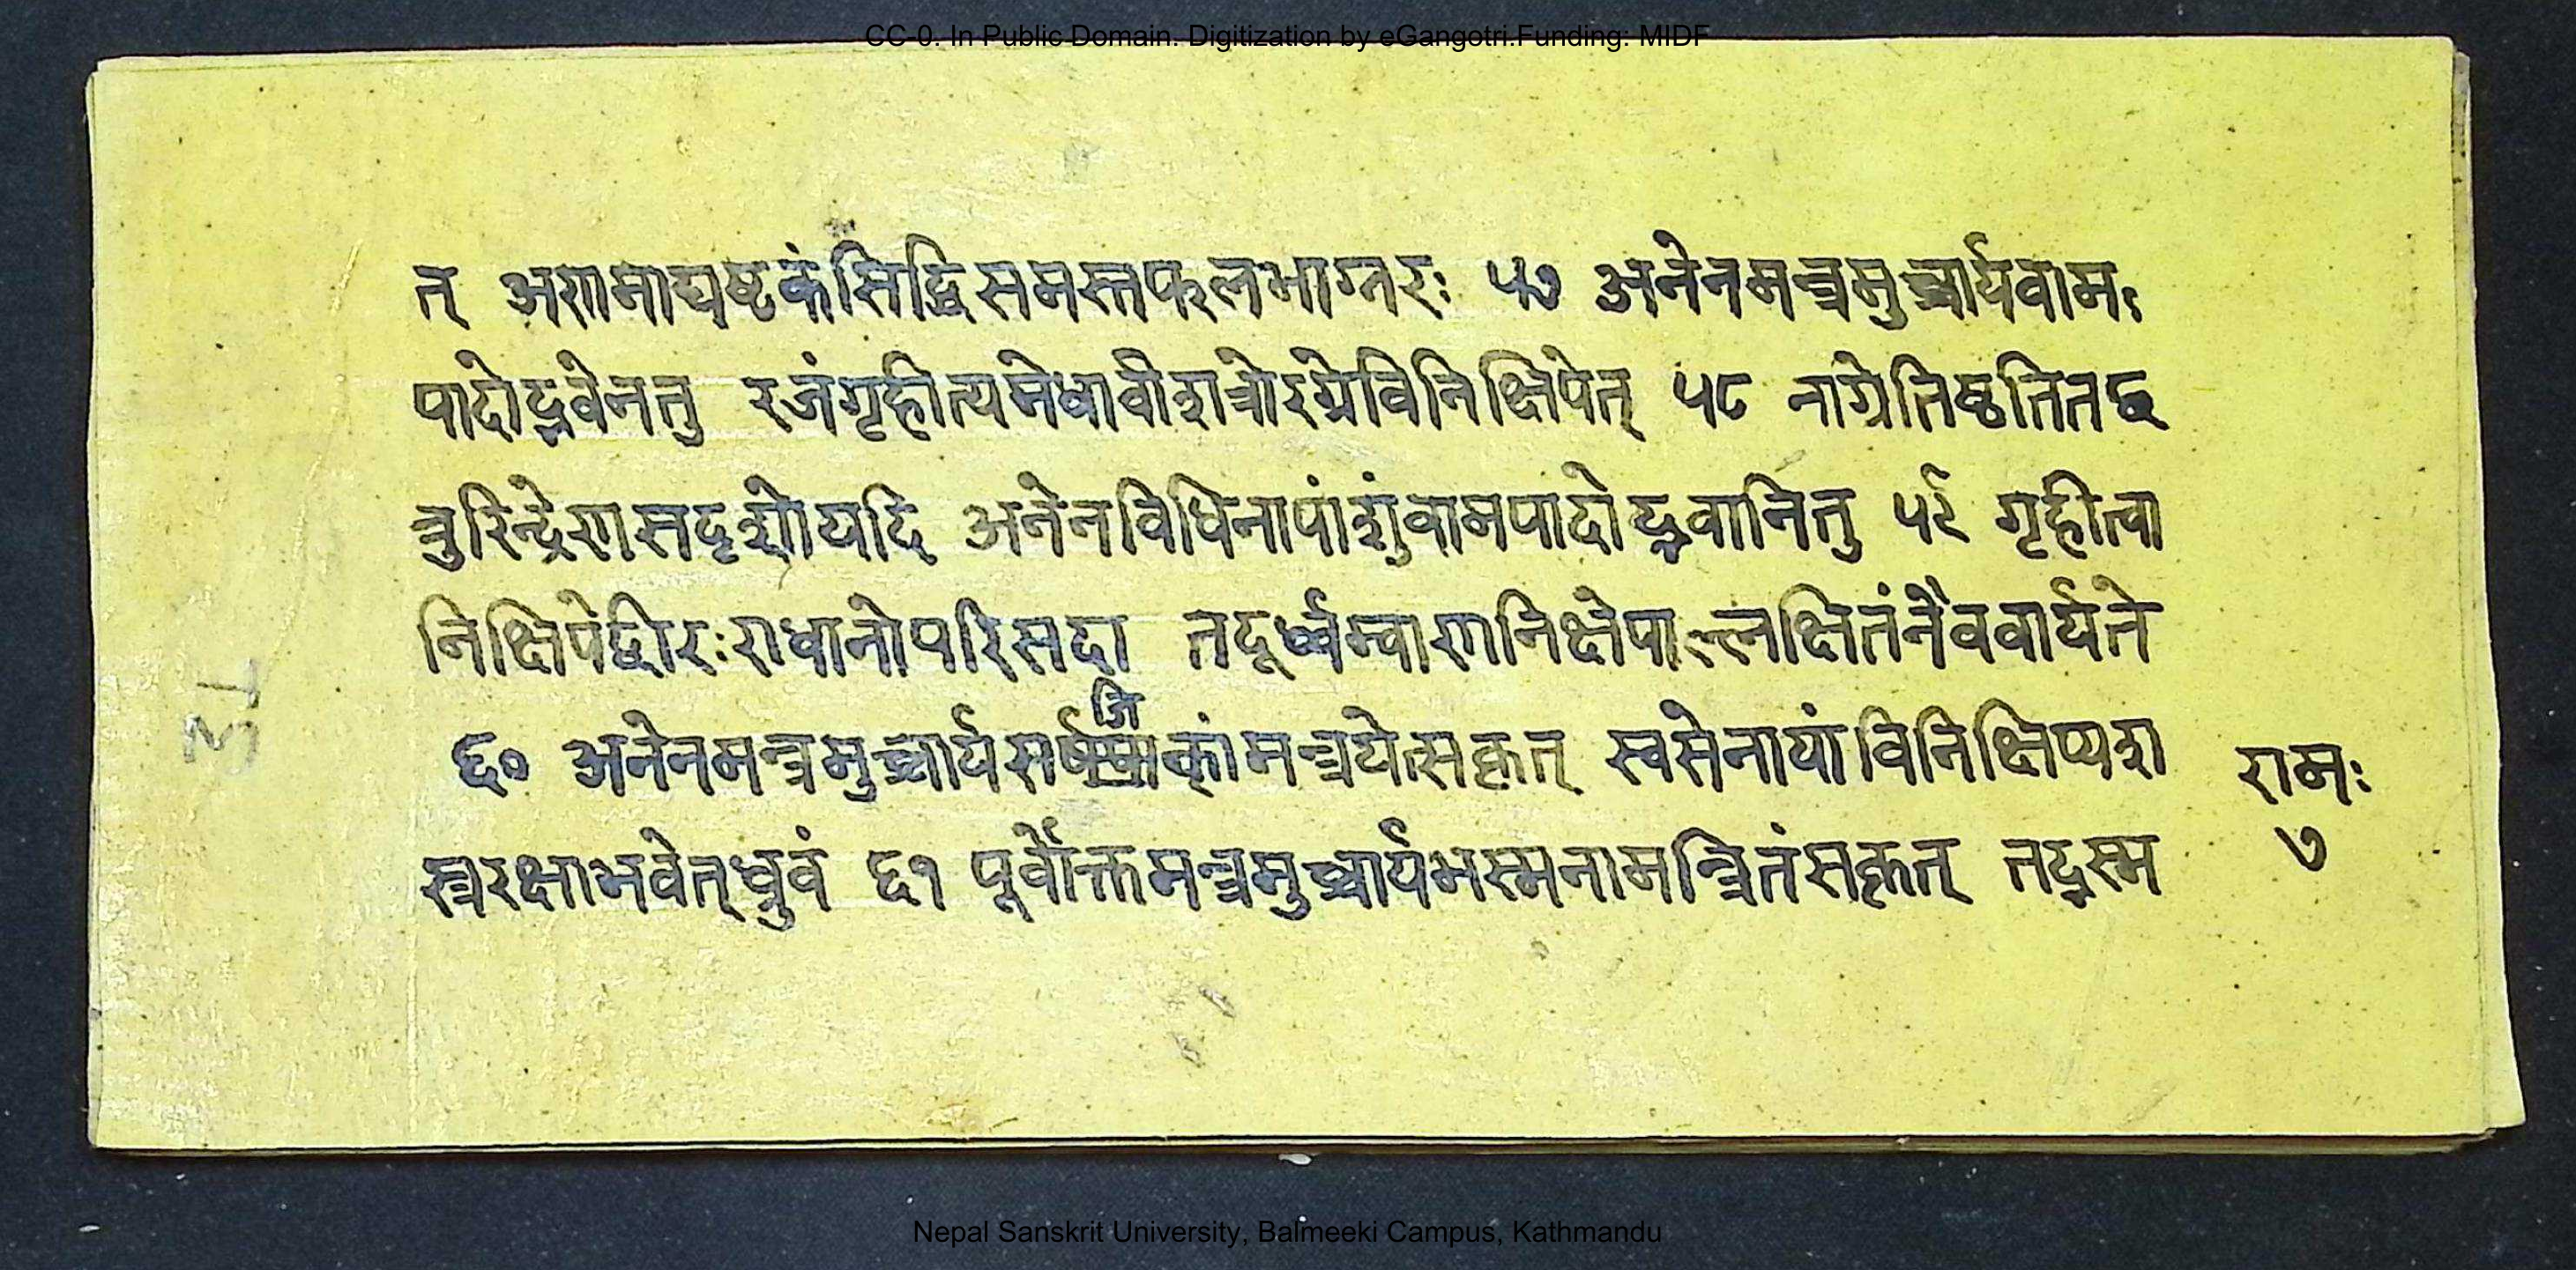 CC-0. In Public Domain. Digitization by eGangotri.Funding: MIDF
त् अणिमाद्यष्टकंसिद्धिसमस्तफलभाग्नरः ५७ अनेनमन्त्रमुच्चार्यवामः
पादोद्भवेनतु रजंगृहीत्यमेधावीशत्रोरग्रेविनिक्षिपेत् ५८ नाग्रेतिष्ठतितच्छ
त्रुरिन्द्रेणसदृशोयदि अनेनविधिनापांशुंवामपादोद्भवानितु ५९ गृहीत्वा
निक्षिपेद्वीरःराधानोपरिसदा तदूर्ध्वम्वाणनिक्षेपाल्लक्षितंनैववार्यते
६० अनेनमन्त्रमुच्चार्यसर्षपाकांमन्त्रयेत्सकृत् स्वसेनायांविनिक्षिप्यश
स्त्ररक्षाभवेत्ध्रुवं ६१ पूर्वोक्तमन्त्रमुच्चार्यभस्मनामन्त्रितंसकृत् तद्भस्म
रामः
७
Nepal Sanskrit University, Balmeeki Campus, Kathmandu